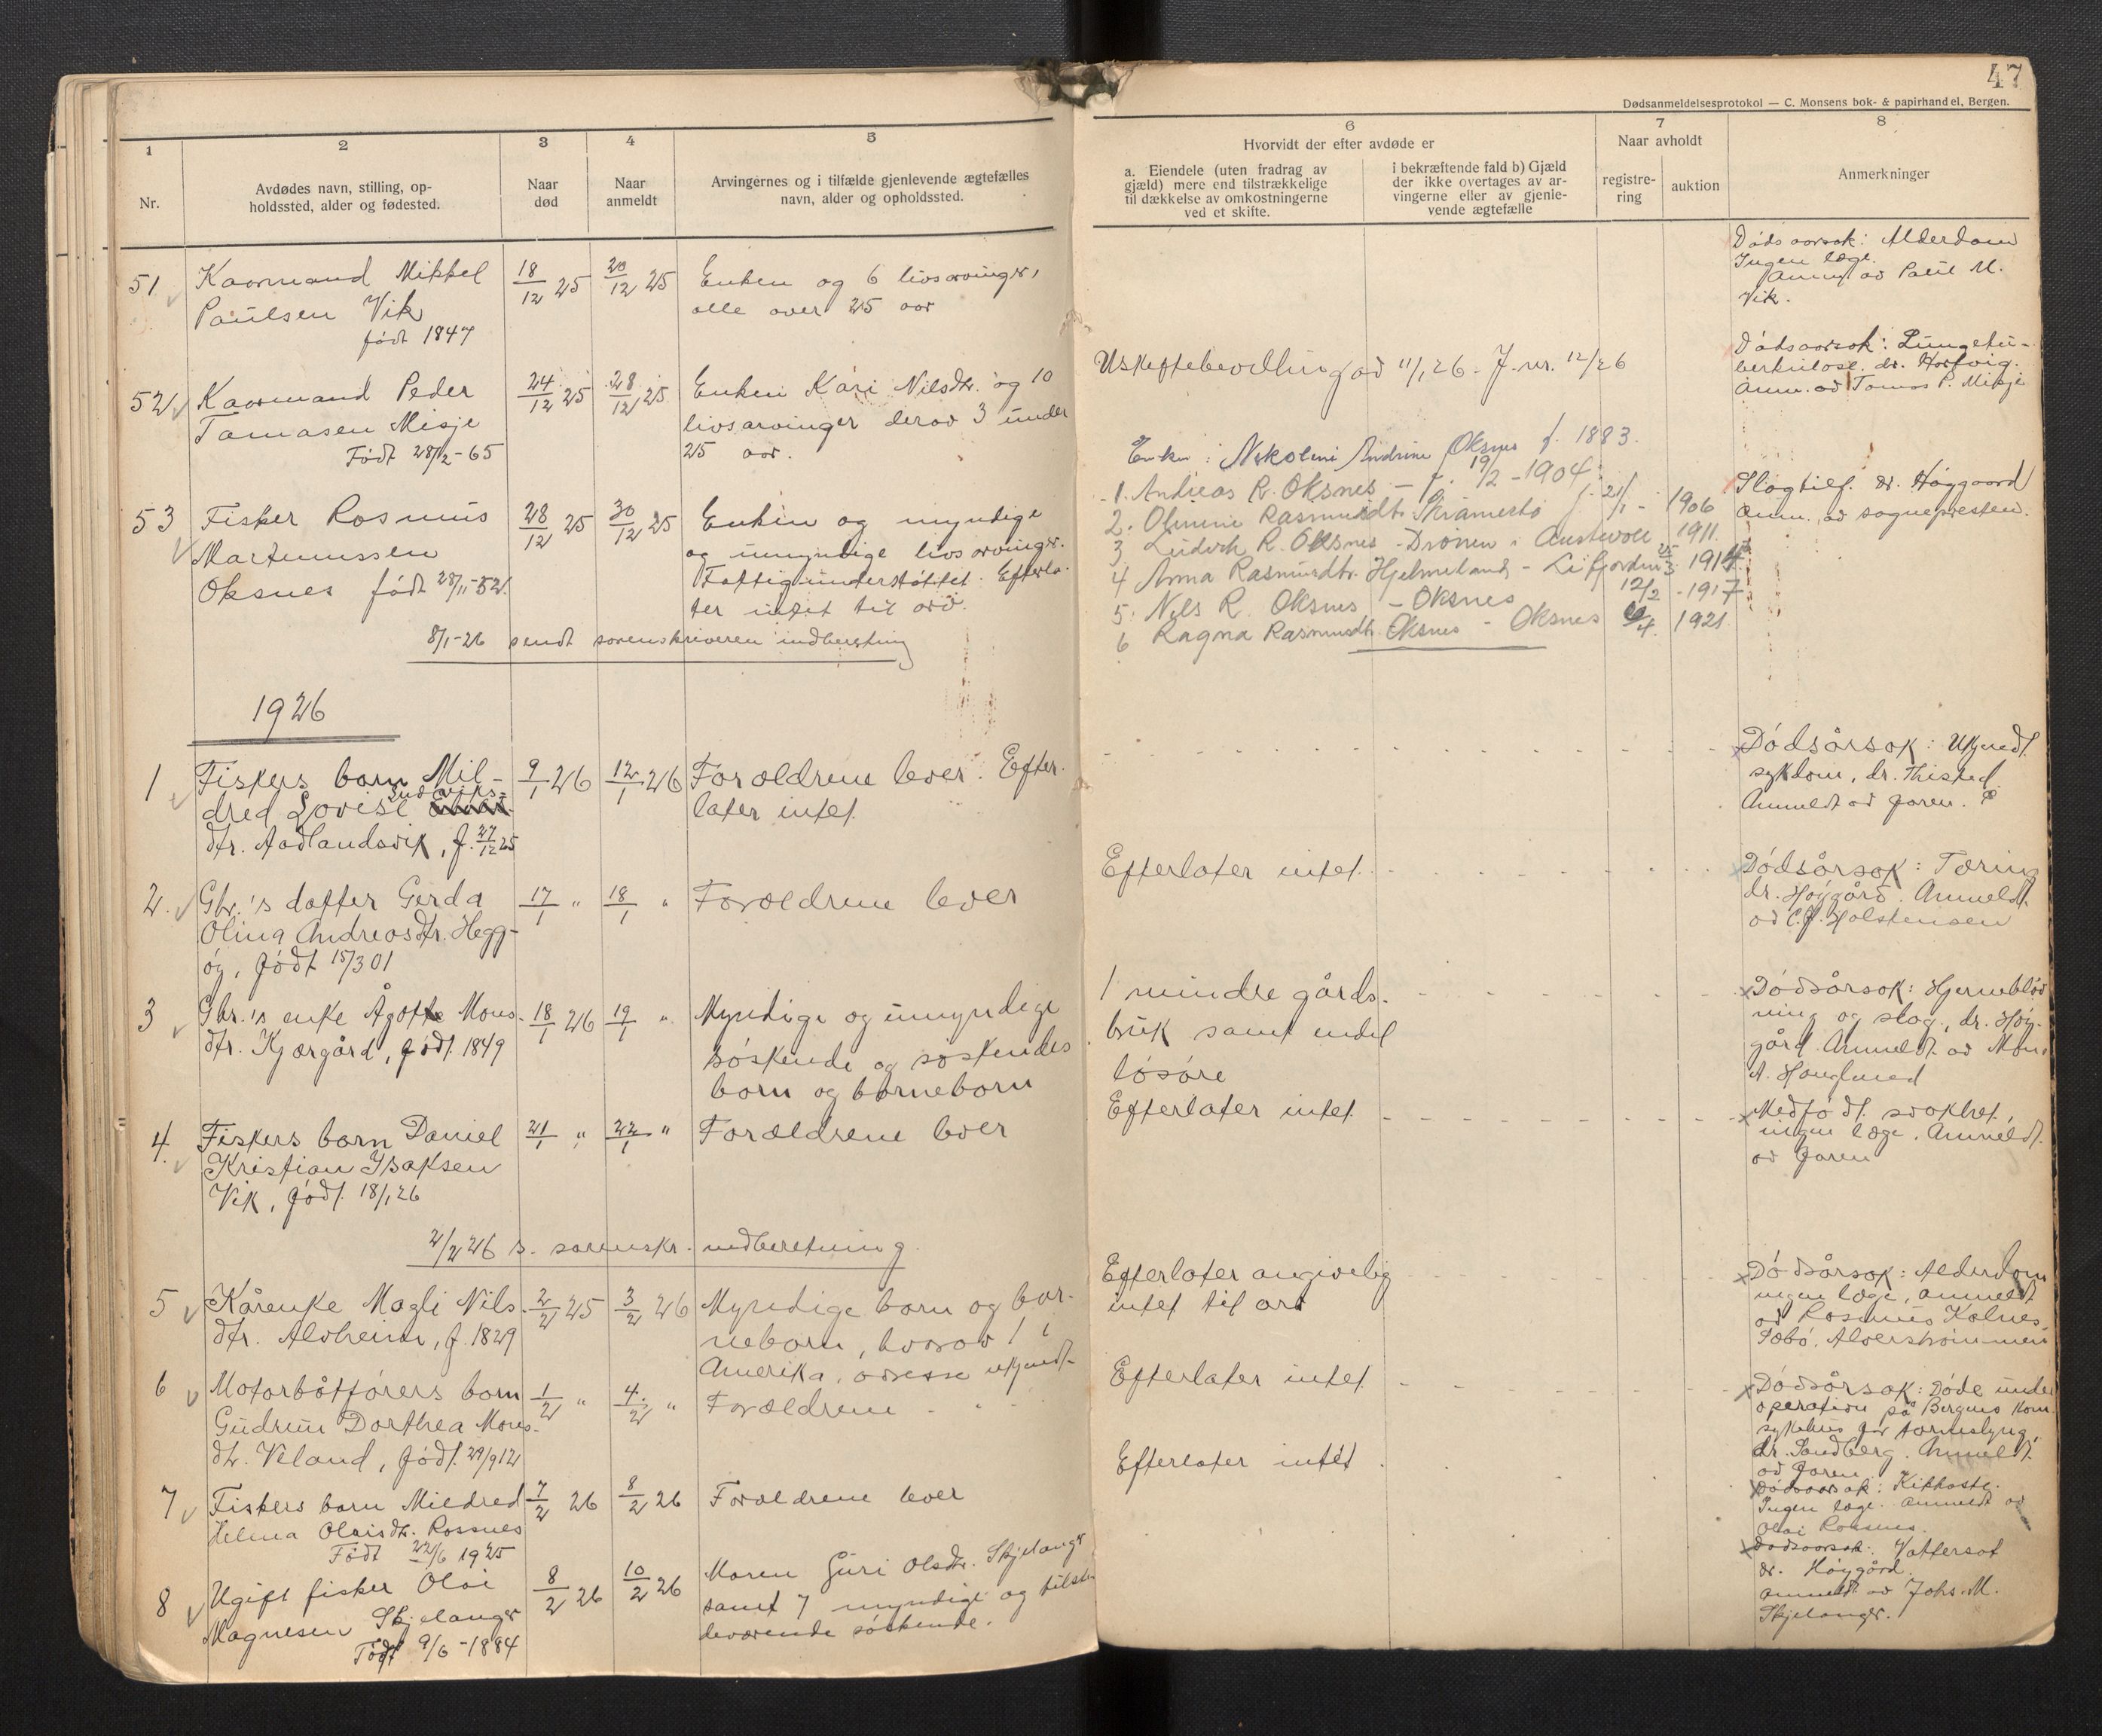 47
Dødsanmeldelsesprotokol — C. Monsens bok- & papirhandel, Bergen.
1
Nr.
2
Avdødes navn, stilling, op-
holdssted, alder og fødested.
3
Naar
død
4
Naar
anmeldt
5
Arvingernes og i tilfælde gjenlevende ægtefælles
navn, alder og opholdssted.
6
Hvorvidt der efter avdøde er
a. Eiendele (uten fradrag av
gjæld) mere end tilstrækkelige
til dækkelse av omkostningerne
ved et skifte.
i bekræftende fald b) Gjæld
der ikke overtages av ar-
vingerne eller av gjenle-
vende ægtefælle
7
Naar avholdt
registre-
ring
auktion
8
Anmerkninger
51
Kaarmand Mikkel
Paulsen Vik
født 1847
18/12 25
20/12 25
Enken og 6 livsarvinger,
alle over 25 aar
Dødsaarsak: Alderdom
Ingen læge.
Anm. av Paul M.
Vik.
52
Kaarmand Peder
Tomasen Misje
Født 28/2-65
24/12 25
28/12 25
Enken Kari Nilsdtr. og 10
livsarvinger derav 3 under
25 aar.
Uskiftebevilling av 11/1 26 - J. nr. 12/26
Dødsaarsak: Lungetu-
berkulose. dr.
Anm. av Tomas P. Misje
53
Fisker Rasmus
Martinussen
Oksnes født 28/11-52.
28/12 25
30/12 25
Enken og myndige
og umyndige livsarvinger.
Fattigunderstøttet. Efterla-
ter intet til arv.
Enke: Nikolini Andrine Oksnes f. 1883.
1. Andreas R. Oksnes — f. 19/2 - 1904
2. Olmine Rasmusdtr. Skramestø f. 21/1 - 1906
3 Ludvik R. Oksnes - Drønen i Austevoll 1911.
4 Anna Rasmusdtr. Hjelmeland - Leifjorden 25/3 1914
5. Nils R. Oksnes - Oksnes 12/2 - 1917
6 Ragna Rasmusdtr. Oksnes - Oksnes 6/4. 1921
Slagtilf. dr. Høygaard
Anm. av sognepresten.
8/1-26 sendt sorenskriveren indberetning
1926
1
Fiskers barn Mil-
dred Lovise Ludviks-
dtr. Aadlandsvik, f. 27/12 25
9/1 26
12/1 26
Forældrene lever. Efter-
later intet.
Dødsårsak: Ukjendt
sykdom, dr. Thisted.
Anmeldt av faren.
2.
Gbr.'s datter Gerda
Olina Andreasdtr. Hegg-
øy, født 15/3 01
17/1 "
18/1 "
Forældrene lever
Efterlater intet.
Dødsårsak: Tæring
dr. Høygård. Anmeldt
av C. J. Holstensen
3
Gbr.'s enke Ågotte Mons-
dtr. Kjærgård, født 1849
18/1 26
19/1 "
Myndige og umyndige
søskende og søskendes
barn og barnebarn
1 mindre gårds-
bruk samt endel
løsøre
Dødsårsak: Hjerneblød-
ning og slag, dr. Høy-
gård. Anmeldt av Mons
A. Hauglund
4.
Fiskers barn Daniel
Kristian Isaksen
Vik, født 18/1 26
21/1 "
22/1 "
Forældrene lever
Efterlater intet
Medfødt svakhet,
ingen læge. Anmeldt
av faren
2/2 26 s. sorenskr. indberetning
5
Kårenke Magli Nils-
dtr. Alvheim, f. 1829
2/2 25
3/2 26
Myndige barn og bar-
nebarn, hvorav 1 i
Amerika, adresse ukjendt.
Efterlater angivelig
intet til arv
Dødsårsak: Alderdom
ingen læge, anmeldt
av Rasmus Kolnes,
Sæbø, Alverstrømmen
6
Motorbåtførers barn
Gudrun Dorthea Mons-
dtr. Veland, født 29/9 12
1/2 "
4/2 "
Forældrene - " -
Efterlater intet
Dødsårsak: Døde under
operation på Bergens Kom.
sykehus for tarmslyng,
dr. Sandberg. Anmeldt
av faren
7
Fiskers barn Mildred
Helma Olaisdtr. Rossnes
Født 22/6 1925
7/2 26
8/2 26
Forældrene lever
Efterlater intet
Dødsaarsak: Kikhoste.
Ingen læge. anmeldt av
Olai Rossnes.
8
Ugift fisker Olai
Magnesen Skjelanger
Født 9/6-1884
8/2 26
10/2 26
Moren Guri Olsdtr. Skjelanger
samt 7 myndige og tilste-
deværende søskende.
Dødsaarsak: Vattersot
dr. Høygård.
anmeldt av Johs. M.
Skjelanger.